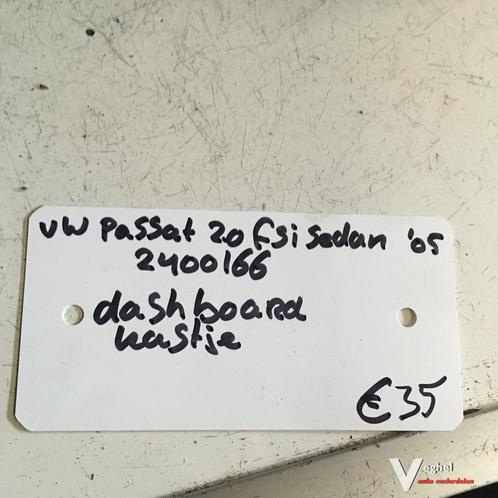 VW Passat 2.0 fsi sedan '05
2400166
dashboard
kastje
€35
Veghel
auto onderdelen